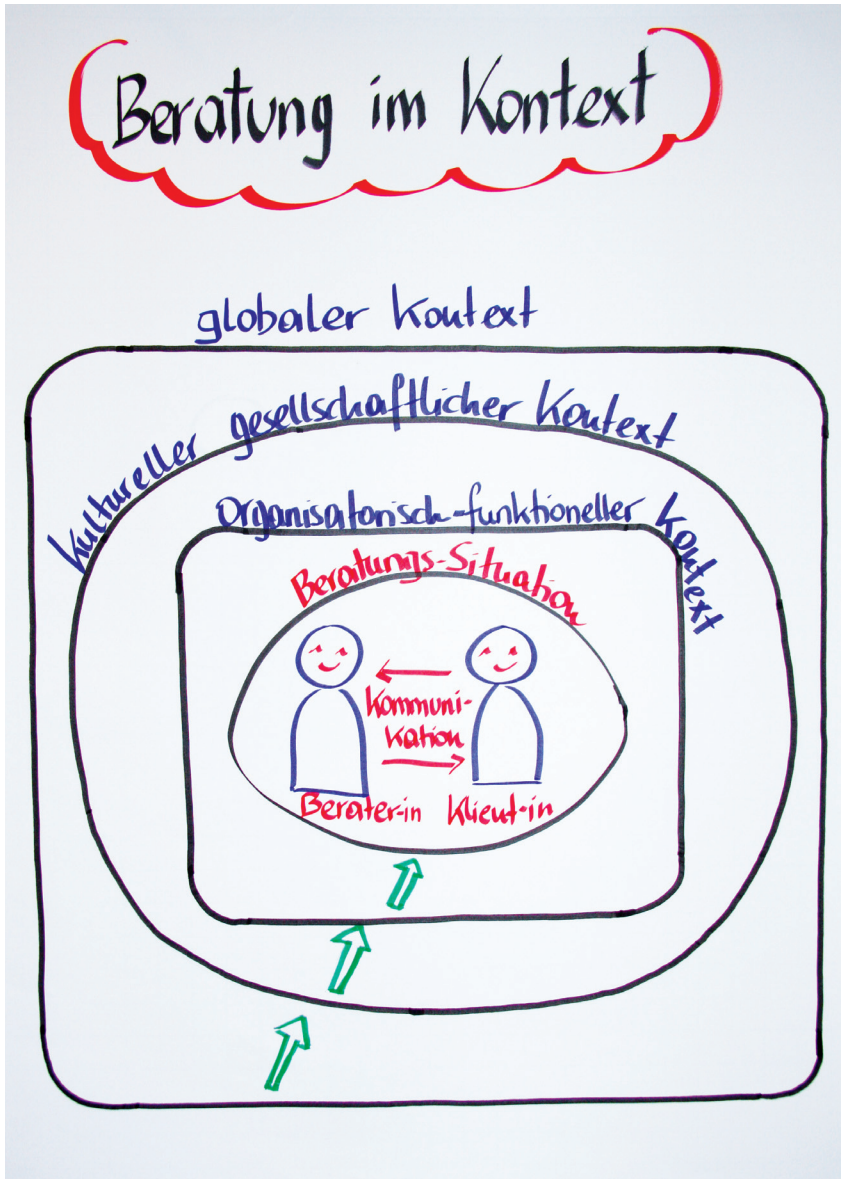 Beratung im Kontext
globaler Kontext
kultureller gesellschaftlicher Kontext
Organisatorisch-funktioneller Kontext
Beratungs-Situation
Kommuni-
kation
Berater-in Klient-in